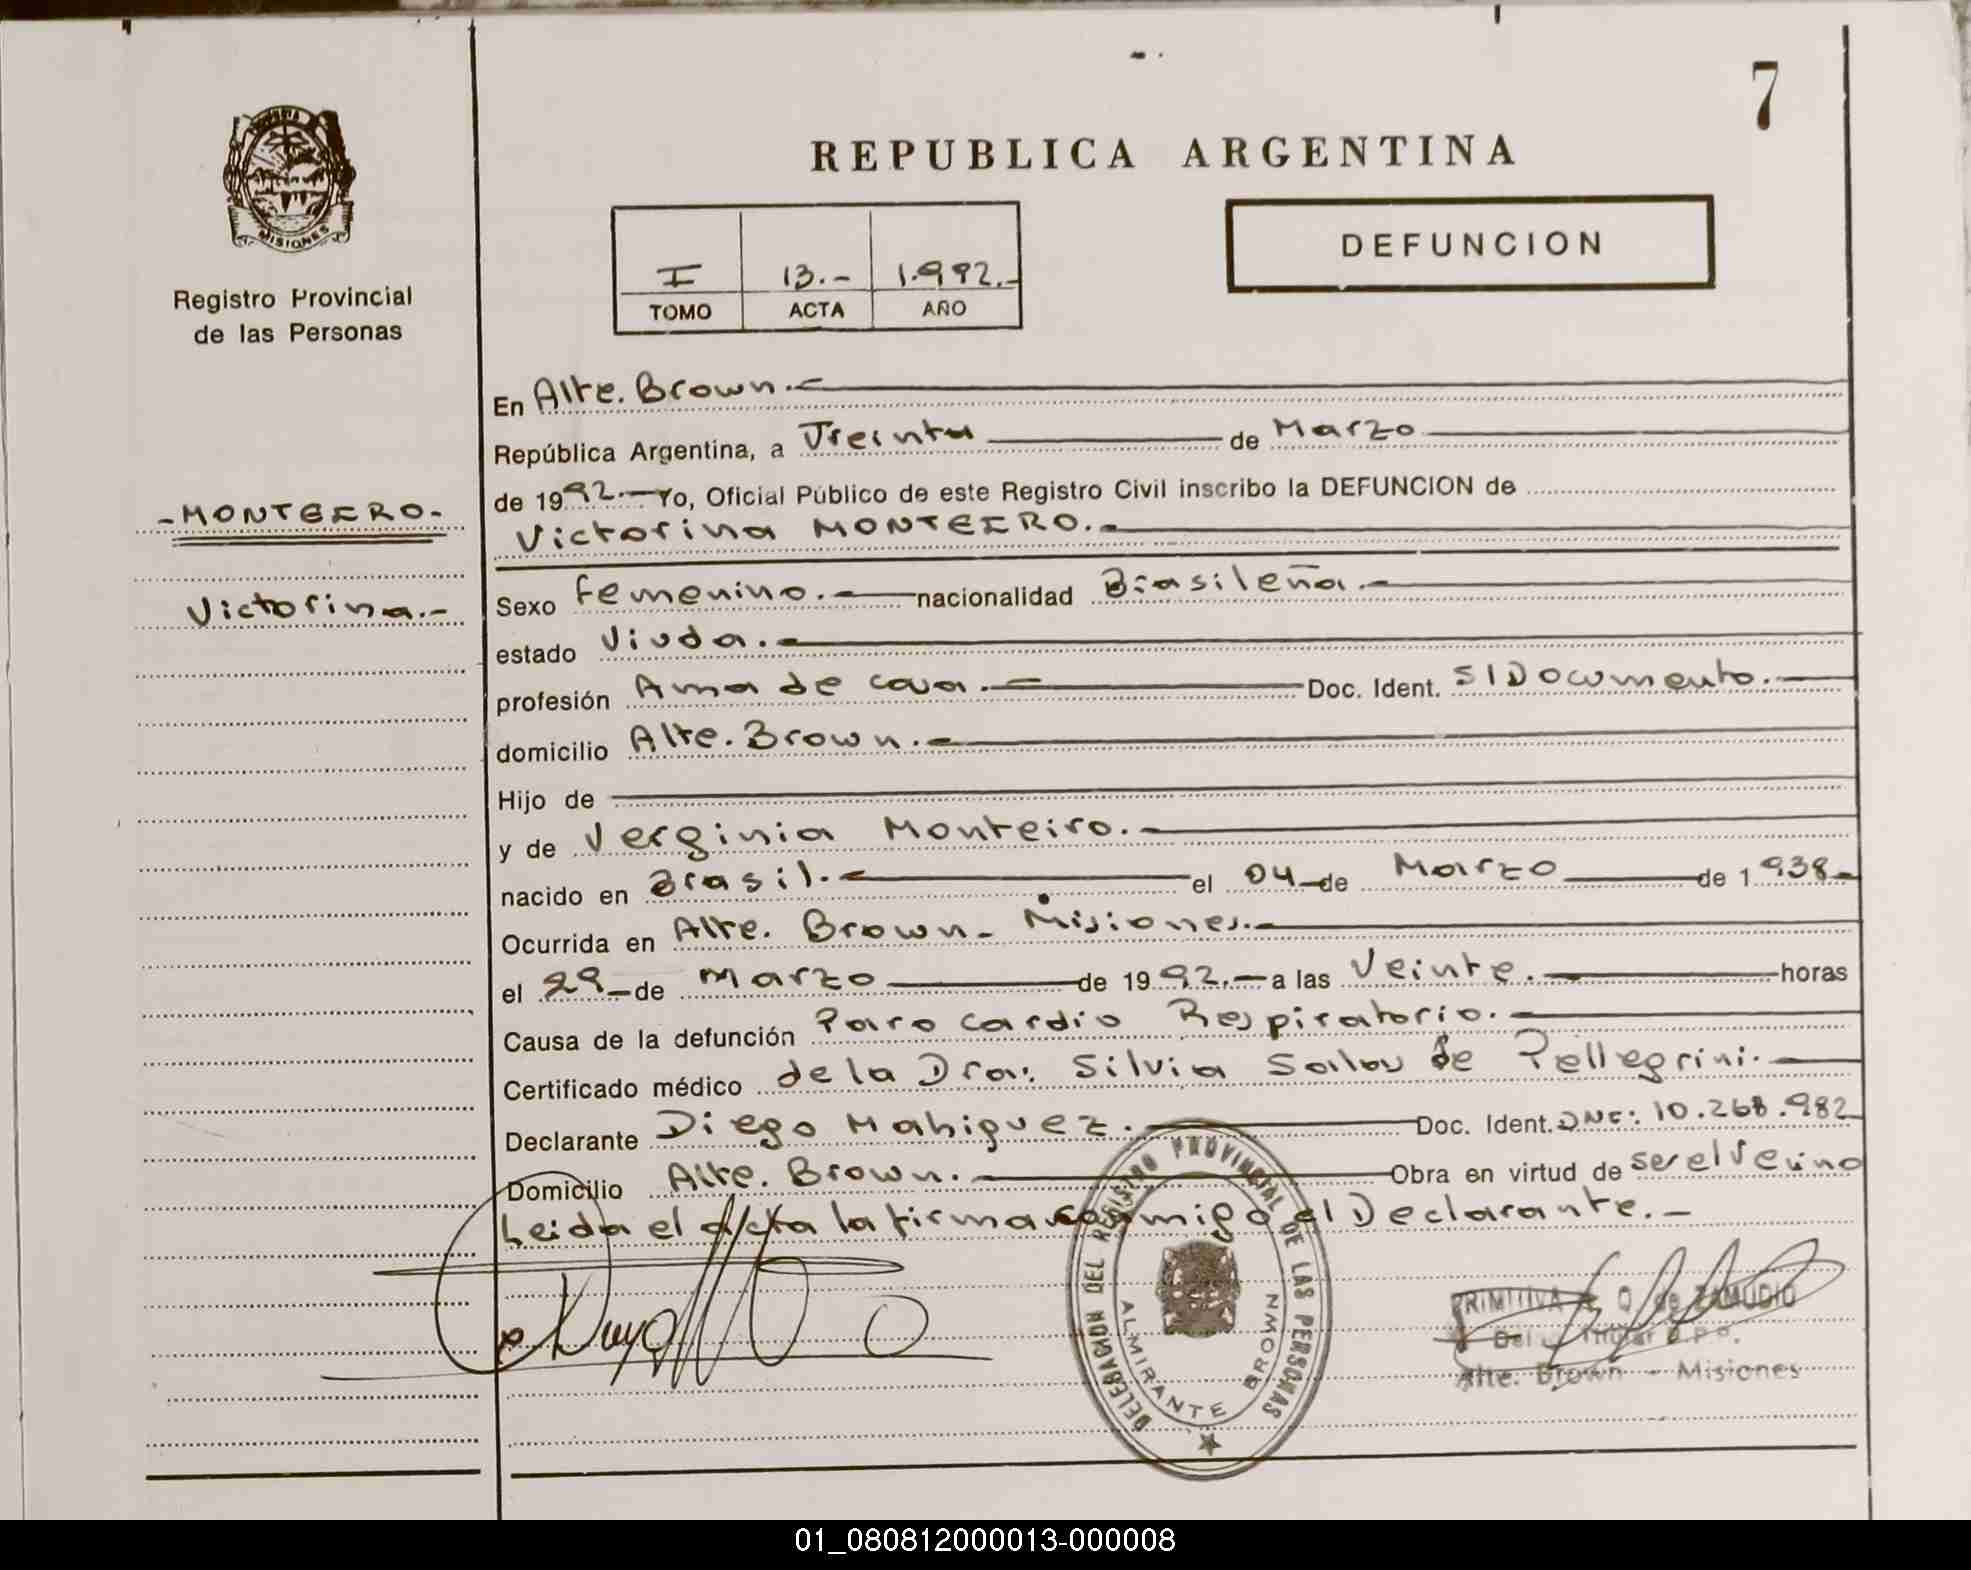 7
REPUBLICA ARGENTINA
MISIONES
Registro Provincial
de las Personas
DEFUNCION
I 13.- 1.992.-
TOMO ACTA AÑO
-MONTEIRO.-
Victorina.-
En Alte. Brown.-
República Argentina, a Treinta de Marzo
de 1992.- Yo, Oficial Público de este Registro Civil inscribo la DEFUNCION de
Victorina MONTEIRO.-
Sexo femenino.- nacionalidad Brasileña.-
estado Viuda.-
profesión Ama de casa.- Doc. Ident. S/Documento.-
domicilio Alte. Brown.-
Hijo de
y de Verginia Monteiro.-
nacido en Brasil.- el 04-de Marzo de 1938-
Ocurrida en Alte. Brown- Misiones.-
el 29-de Marzo de 1992.- a las Veinte.- horas
Causa de la defunción Paro cardio Respiratorio.-
Certificado médico de la Dra: Silvia Salas de Pellegrini.-
Declarante Diego Mahiguez.- Doc. Ident. DNI: 10.268.982
Domicilio Alte. Brown.- Obra en virtud de ser el Vecino
Leida el acta la firma conmigo el Declarante.-
DELEGACION DEL REGISTRO PROVINCIAL DE LAS PERSONAS
ALMIRANTE BROWN
PRIMITIVA Q. de ZAMUDIO
Titular
Alte. Brown - Misiones
01_080812000013-000008